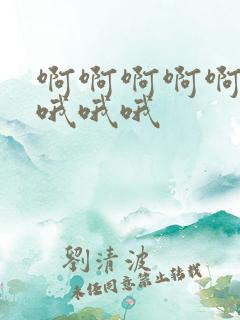 啊啊啊啊啊
哦哦哦
劉清波
未经同意禁止转载